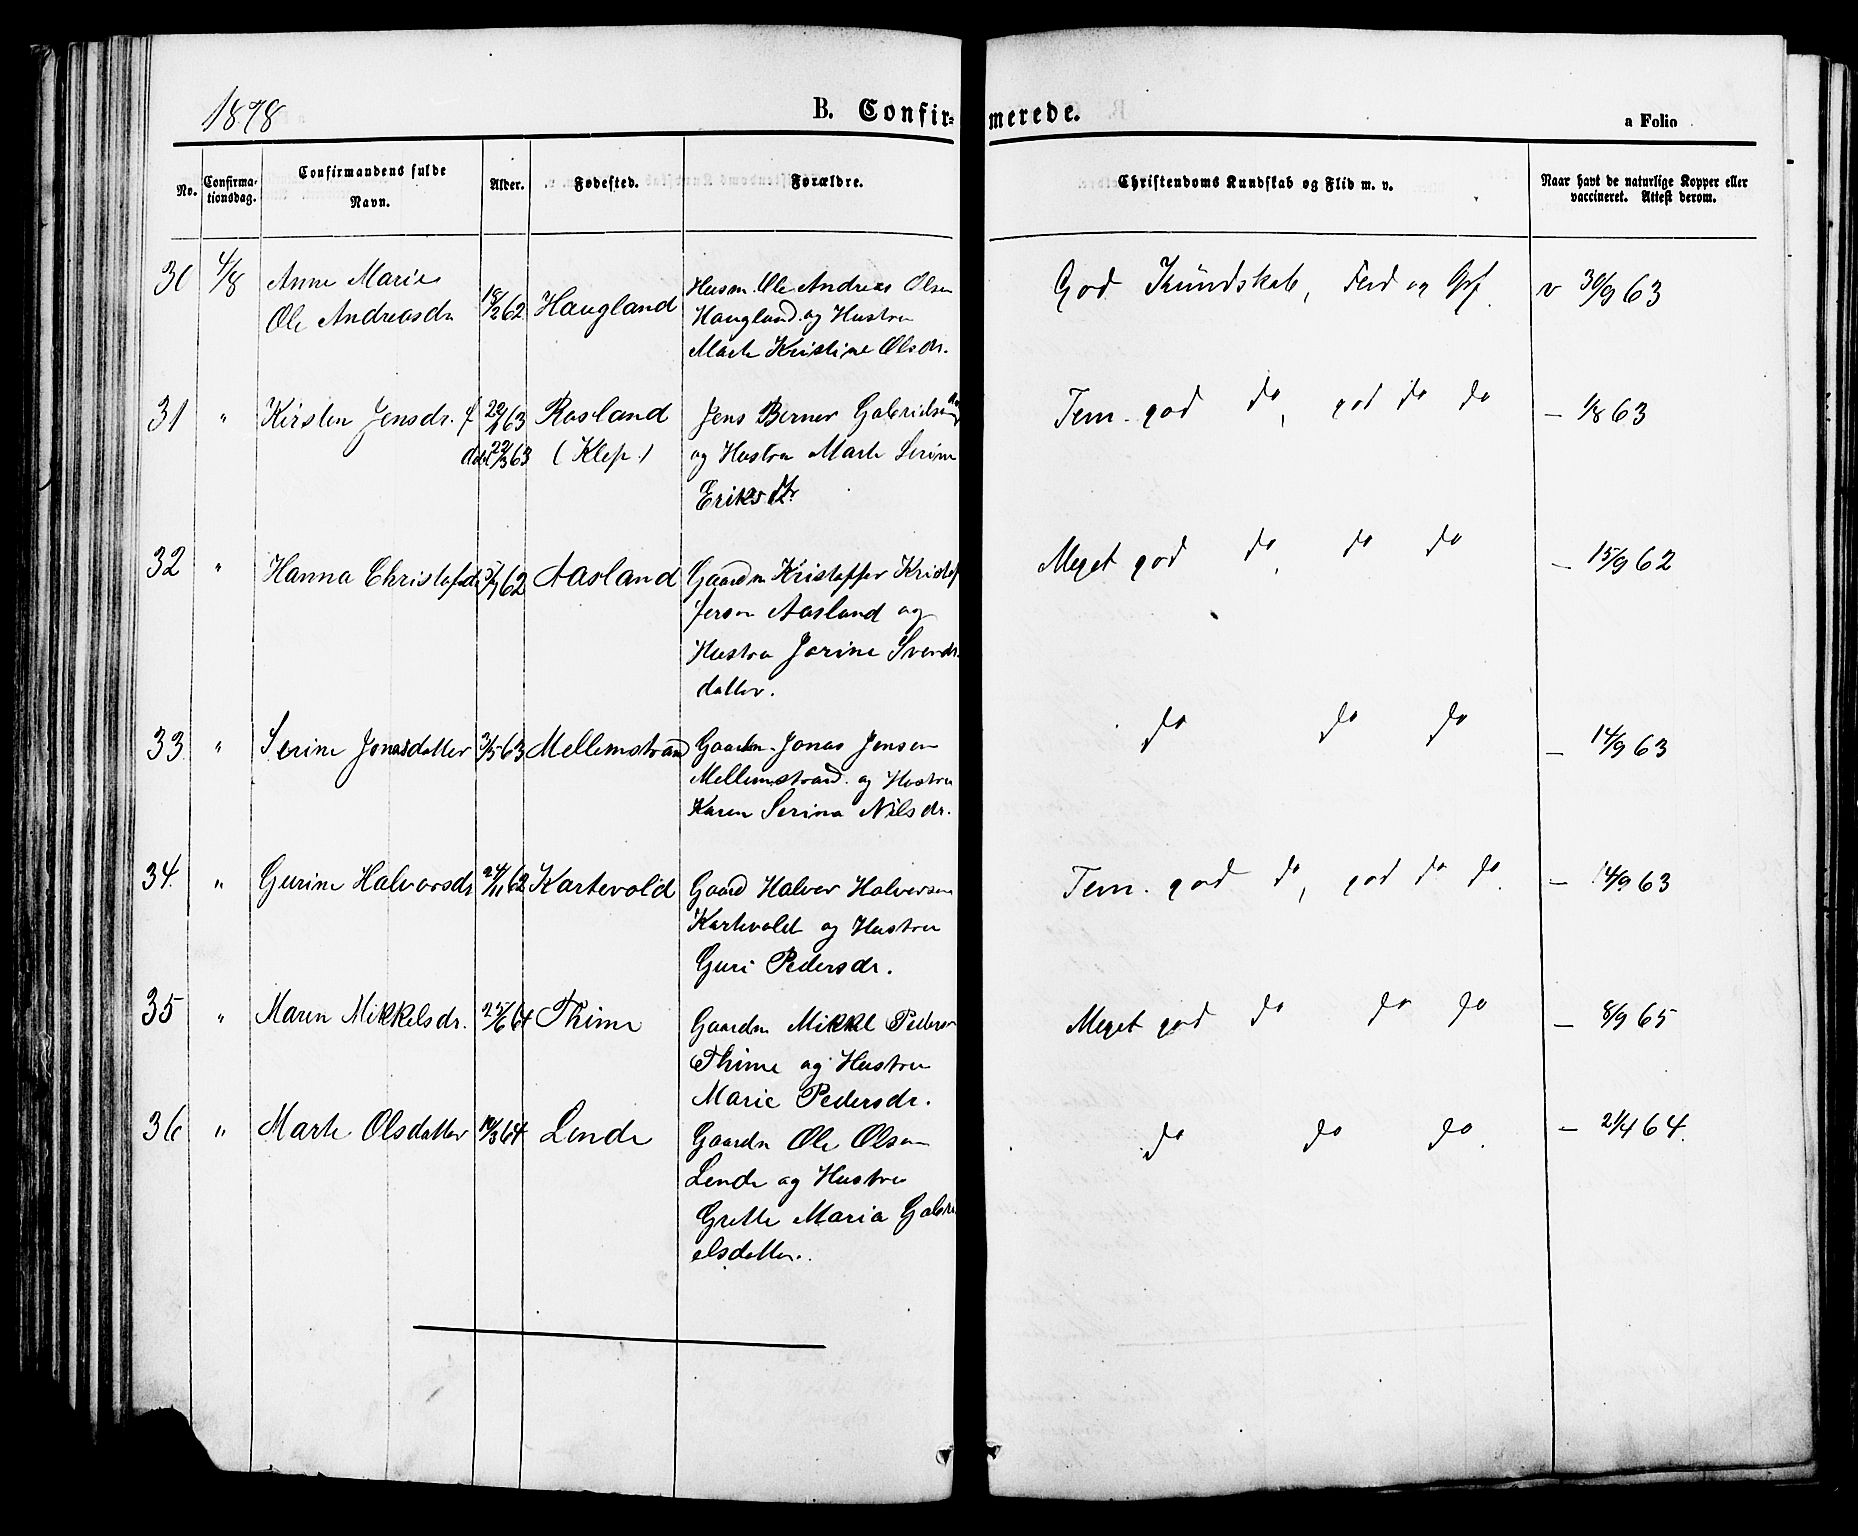 1878
B. Confirmerede.
a Folio
No.
Confirmationsdag.
Confirmandens fulde Navn.
Alder.
Fødested.
Forældre.
Christendoms Kundskab og Flid m. v.
Naar havt de naturlige Kopper eller vaccineret. Attest derom.
30 4/8 Anne Marie 18/2 62 Haugland Husm. Ole Andreas Olsen God Kundskab, Flid og v 30/9 63
Ole Andreasdr Haugland og Hustru
Marte Kristine Olsdr.
31 " Kirsten Jensdr. f 63 Rosland Jens Berner Gabrielsen Tem. god do, god do do — 1/8 63
døbt 22/3 63 (Klep.) og Hustru Marte Serine
Eriksdtr
32 " Hanna Christofsdr 62 Aasland Gaardm Kristoffer Kristof Meget god do, do do — 15/9 62
fersen Aasland og
Hustru Jorine Svends
datter.
33 " Serine Jonasdatter 3/5 63 Mellemstrand Gaardm. Jonas Jensen do do do — 14/9 63
Mellemstrand og Hustru
Karen Serina Nilsdr.
34. " Gurine Halvorsdr 24/11 62 Kartevold Gaard Halvor Halvorsen Tem. god do, god do do. — 14/9 63
Kartevold og Hustru
Guri Pedersdr.
35 " Maren Mikkelsdr. 25/6 64 Thime Gaardm Mikkel Pedersen Meget god do do do — 8/9 65
Thime og Hustru
Marie Pedersdr.
36 " Marte Olsdatter 64 Lende Gaardm Ole Olsen do do do. — 21/4 64.
Lende og Hustru
Grette Maria Gabri
elsdatter.